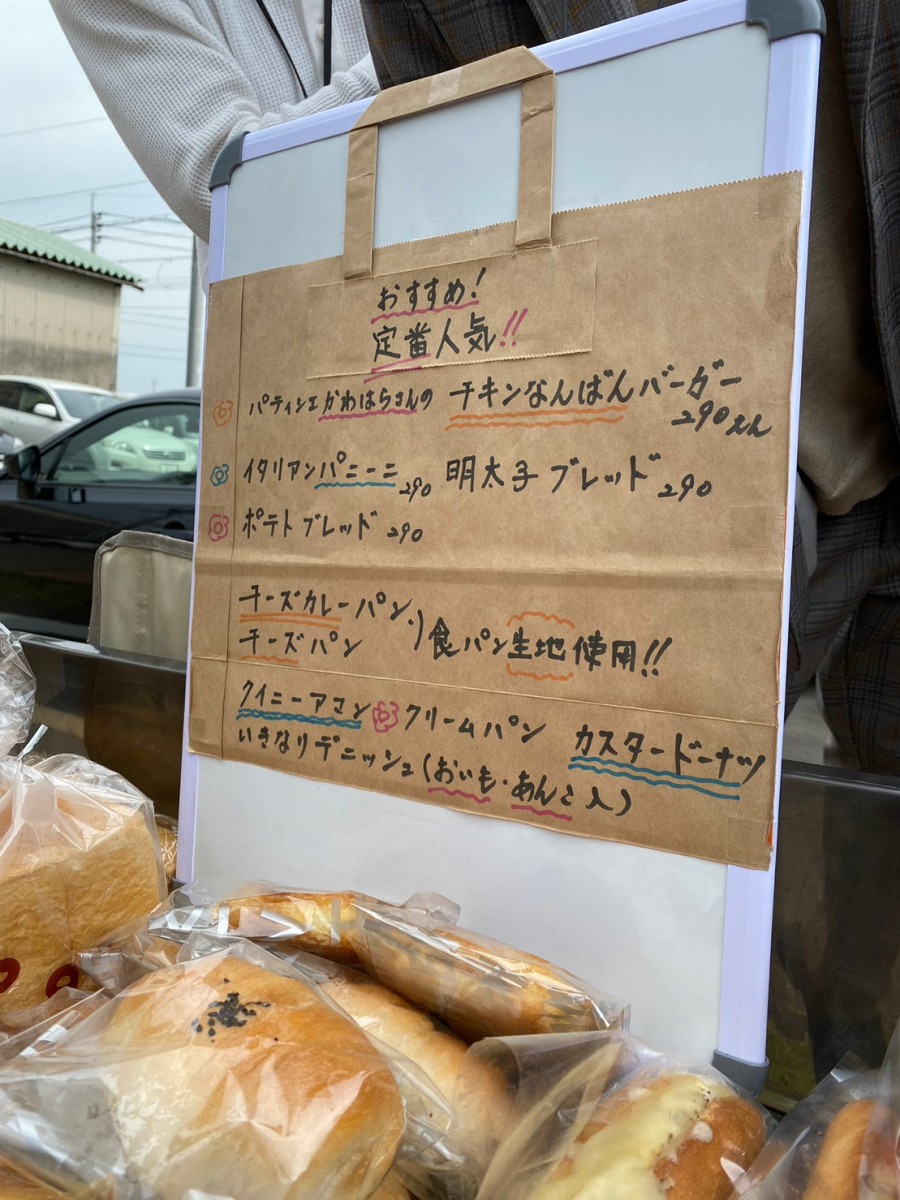 おすすめ!
定番人気!!
パティシエかわはらさんの チキンなんばんバーガー
290えん
イタリアンパニーニ 290 明太子ブレッド 290
ポテトブレッド 290
チーズカレーパン
チーズパン
食パン生地使用!!
クイニーアマン クリームパン カスタードーナツ
いきなりデニッシュ(おいも・あんこ入)